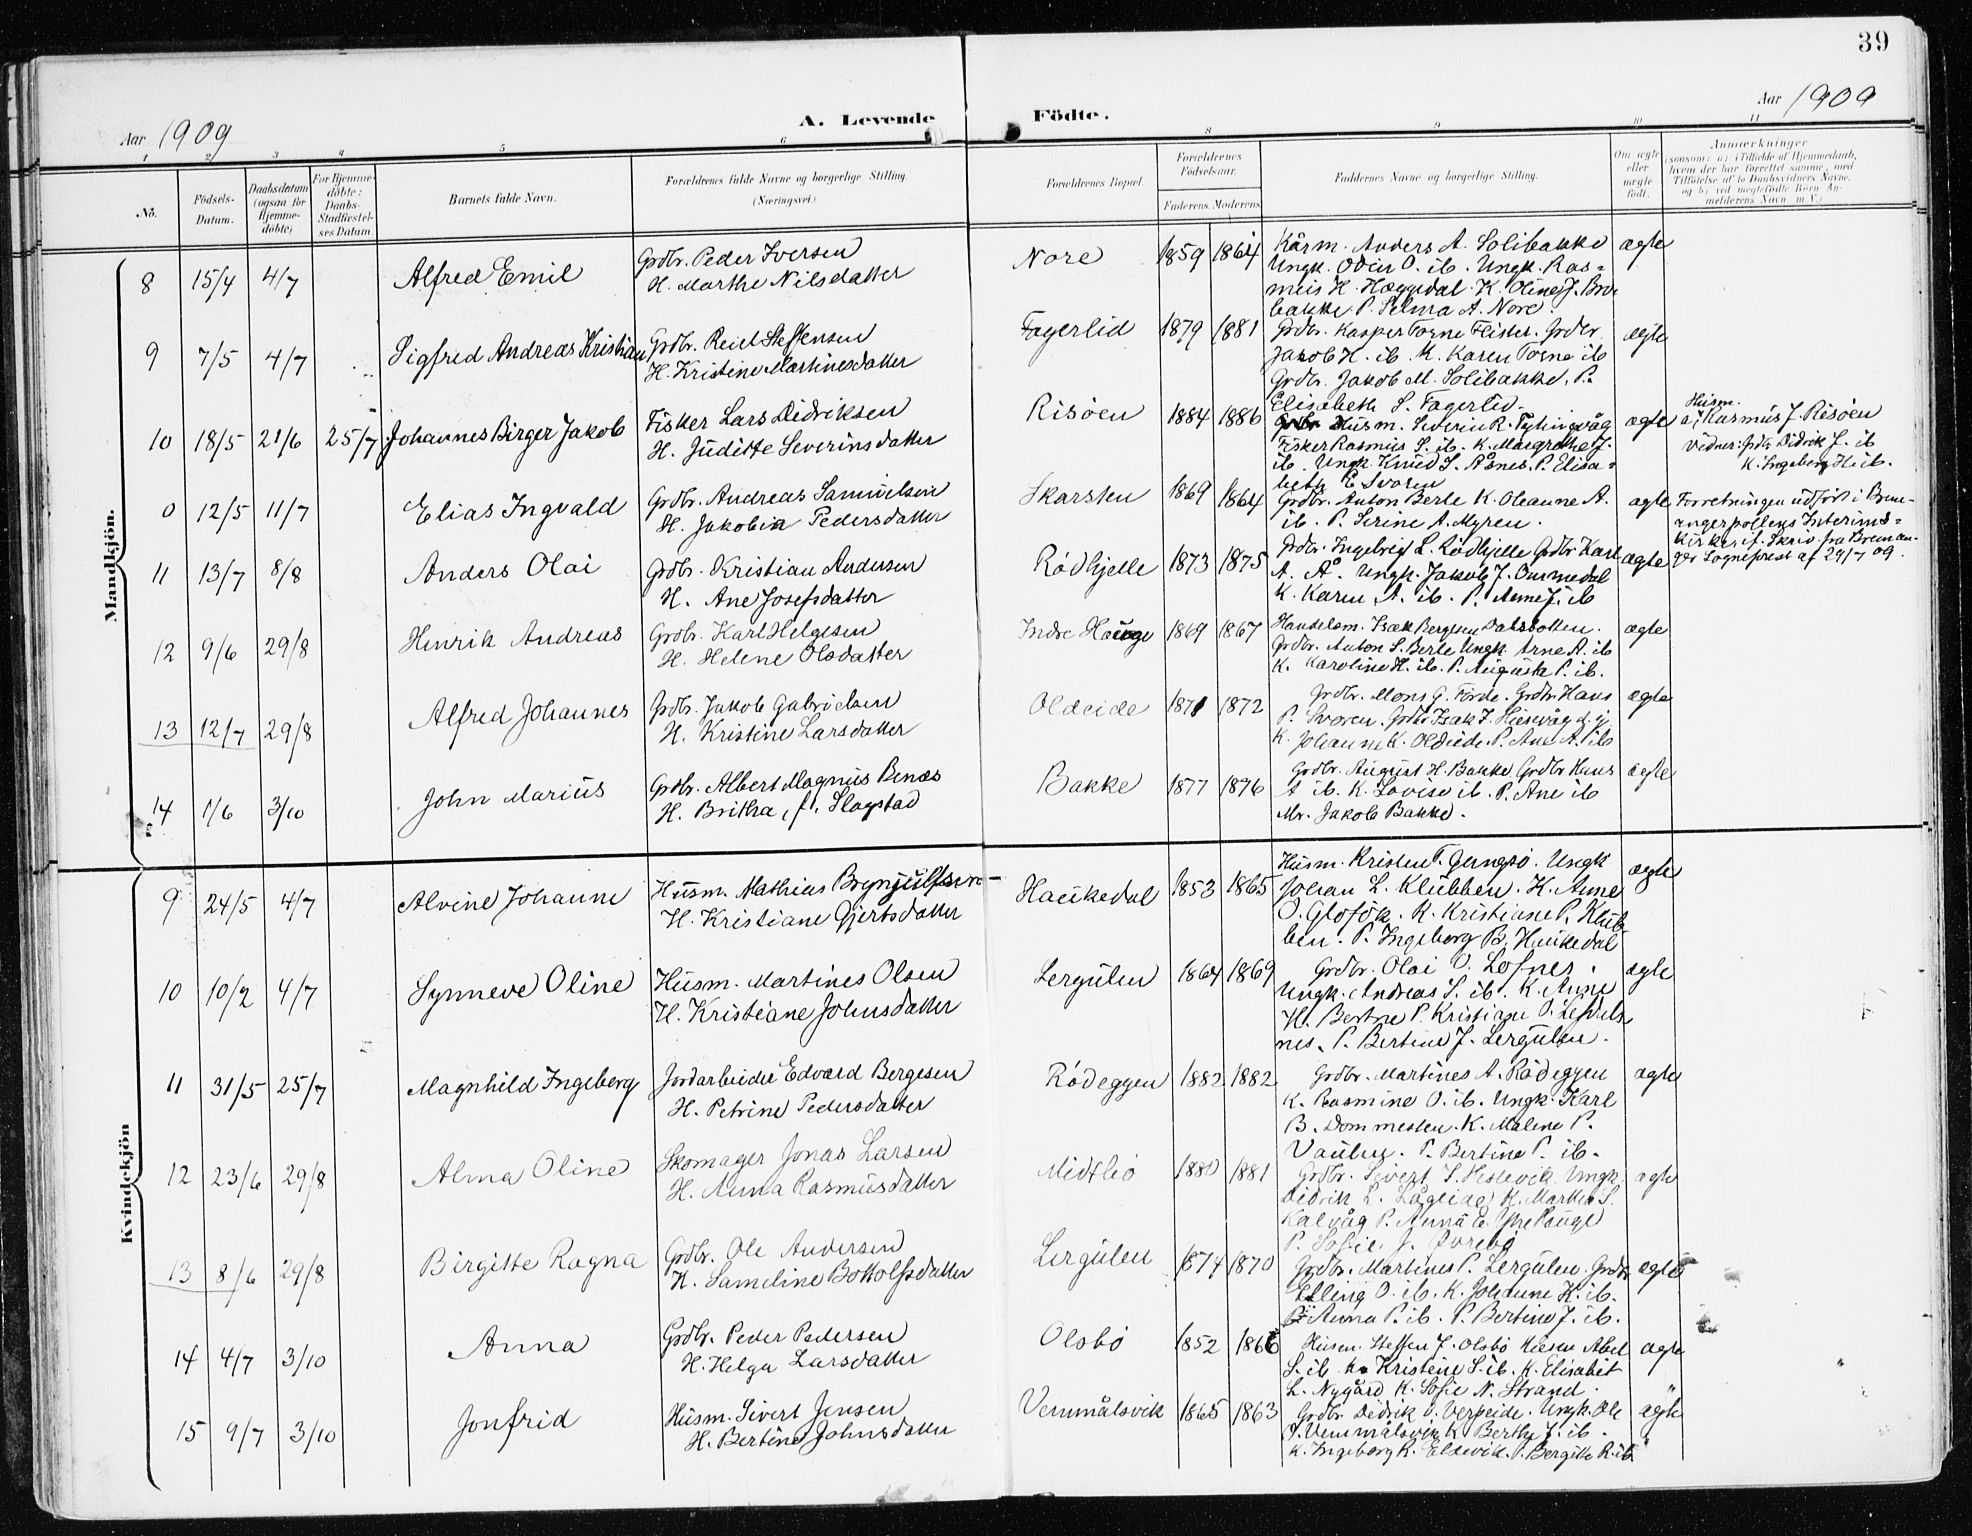 39
Aar 1909
A. Levende Födte.
Aar 1909
1 2 3 4 5 6 8 9 10 11
No.
Födsels-Datum.
Daabsdatum (ogsaa for Hjemme-döbte)
For Hjemme-döbte: Daabs-Stadfæstel-ses Datum.
Barnets fulde Navn.
Forældrenes fulde Navne og borgerlige Stilling. (Næringsvei.)
Forældrenes Bopæl.
Forældrenes Födselsaar.
Faderens. Moderens.
Faddernes Navne og borgerlige Stilling.
Om ægte eller uægte födt.
Anmærkninger
(saasom: a) i Tilfælde af Hjemmedaab, hvem der har forrettet samme, med Tilföielse af to Daabsvidners Navne, og b) ved uægtefödte Börn An-melderens Navn m. V.)
Mandkjön.
8 15/4 4/7 Alfred Emil
Grdbr. Peder Iversen
H. Marthe Nilsdatter
Nore 1859 1864
Kårm. Anders A. Solibakke
Ungk. Odin O. ib. Ungk. Ras=
mus H. Hæggedal. K. Oline J. Bro-
bakke P. Selma A. Nore.
ægte
9 7/5 4/7 Sigfred Andreas Kristian
Grdbr. Reiel Steffensen
H. Kristine Martinesdatter
Fagerlid 1879 1881
Grdbr. Kasper Togne Fister. Grdbr
Jakob H. ib. K. Karen Togne ib
Grdbr. Jakob M. Solibakke. P.
Elisabeth S. Fagerlid.
ægte
10 18/5 21/6 25/7 Johannes Birger Jakob
Fisker Lars Didriksen
H. Juditte Severinsdatter
Risöen 1884 1886
Husm. Severin R. Tytingvåg
Fisker Rasmus S. ib. K. Margrethe J.
ib. Ungk. Knud S. Åsnes. P. Elisa=
beth E. Svoren
ægte
Husm.
a) Rasmus J. Risöen
Vidner: Grdbr. Didrik J. ib
K. Ingeberg H. ib.
0 12/5 11/7 Elias Ingvald
Grdbr. Andreas Samuelsen
H. Jakobin Pedersdatter
Skarsten 1869 1864
Grdbr. Anton Berle K. Oleanne A.
ib. P. Serine A. Myren.
ægte
Forretningen udfört i Brem-
angerpollens Interims=
kirke, if. Skriv. fra Breman-
ger Sogneprest af 29/7 09.
11 13/7 8/8 Anders Olai
Grdbr. Kristian Andersen
H. Ane Josefsdatter
Rödhjelle 1873 1875
Grdbr. Ingebrigt L. Rödhjelle Grdbr Karl
A. Å. Ungk. Jakob J. Ommedal
K. Karen A. ib. P. Anne J. ib
ægte
12 9/6 29/8 Henrik Andreas
Grdbr. Karl Helgesen
H. Helene Olsdatter
Indre Hauge 1869 1867
Handelsm. Isak Bergesen Dalsbotten.
Grdbr. Anton S. Berle Ungk. Arne A. ib
K. Karoline H. ib. P. Auguste P. ib.
ægte
13 12/7 29/8 Alfred Johannes
Grdbr. Jakob Gabrielsen
H. Kristine Larsdatter
Oldeide 1871 1872
Grdbr. Mons G. Förde. Grdbr. Hans
P. Svoren. Grdbr Isak J. Husevåg
K. Johanne K. Oldeide. P. Ane A. ib
ægte
14 1/6 3/10 John Marius
Grdbr. Albert Magnus Benæs
H. Brikka, f. Slagstad
Bakke 1877 1876
Grdbr. August H. Bakke Grdbr Hans
A ib. K. Lovise ib. P. Ane ib
Mr. Jakob Bakke.
ægte
Kvindekjön
9 24/5 4/7 Alvine Johanne
Husm. Mathias Brynjulfsen
H. Kristiane Gjertsdatter
Haukedal 1853 1865
Husm. Kristen T. Gungsö. Ungk
Johan L. Klubben. K. Anne
O. Gloföik. K. Kristiane P. Klub-
ben. P. Ingeborg B. Haukedal
ægte
10 10/2 4/7 Synneve Oline
Husm. Martines Olsen
H. Kristiane Johnsdatter
Lergulen 1864 1869
Grdbr. Olai O. Lofnes.
Ungk. Andreas S. ib. K. Anne
H. Bertne P. Kristiane O. Lefdals
nes. P. Bertine J. Lergulen.
ægte
11 31/5 25/7 Magnhild Ingeberg
Jordarbeider Edvard Bergesen
H. Petrine Pedersdatter
Rödeggen 1882 1882
Grdbr. Martines A. Rödeggen
K. Rasmine O. ib. Ungk. Karl
B. Dommesten. K. Malene P.
P. Bertine P. ib.
ægte
12 23/6 29/8 Alma Oline
Skomager Jonas Larsen
H. Anna Rasmusdatter
Midtbö 1880 1881
Grdbr. Sivert S. Hestevik. Ungk.
Didrik L. K. Marthe S.
Kalvåg P. Anna E. Ytre Hauge
P. Sofie J. Övrebö
ægte
13 8/6 29/8 Birgitte Ragna
Grdbr. Ole Andersen
H. Sameline Botholfsdatter
Lergulen 1874 1870
Grdbr. Martines P. Lergulen. Grdbr
Elling O. ib. K. Johanne H. ib.
P. Anna P. ib. P. Bertine J. ib.
ægte
14 4/7 3/10 Anna
Grdbr. Peder Pedersen
H. Helga Larsdatter
Olsbö 1852 1866
Husm. Steffen J. Olsbö Husm Abel
S. ib K. Kristine S. ib. K. Elisabet
L. Nygård K. Sofie N. Strand.
ægte
15 9/7 3/10 Jonfrid
Husm. Sivert Jensen
H. Bertine Johnsdatter
Vemmålsvik 1865 1863
Grdbr. Didrik O. Verpeide. Ungk. Ole
S. Vemmålsvik K Berthe J. ib.
K. Ingeborg R. Eldevik. P. Bergitte R. ib
ægte